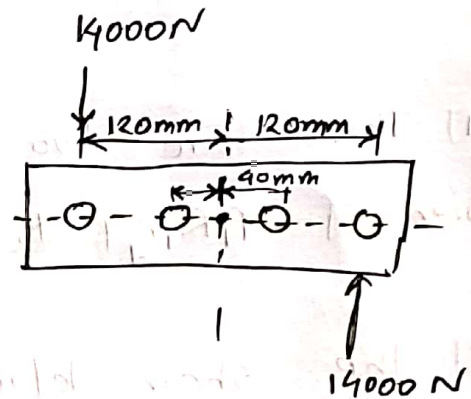 14000N
120mm 120mm
40mm
14000 N